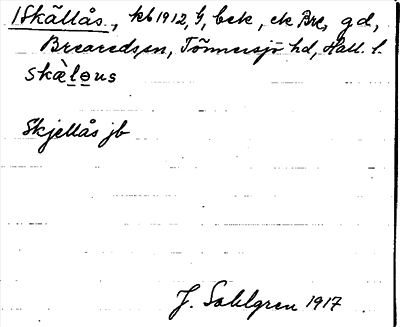 1 Skällås, kb 1912, G, bek, ek Bre, gd,
Breareds sn, Tönnersjö hd, Hall. l.
skæ̀lɷus
Skjellås jb
J. Sahlgren 1917